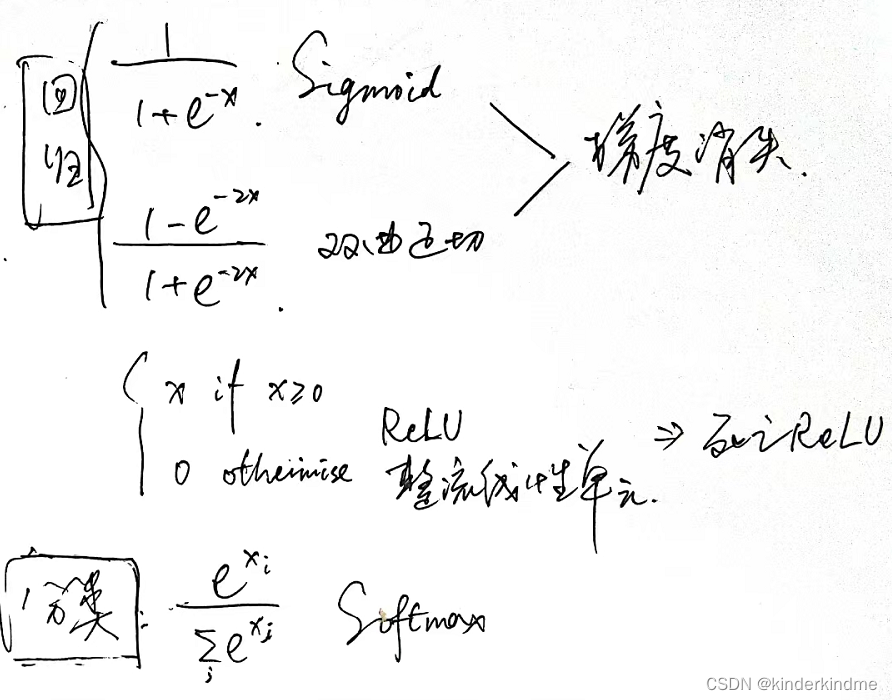 回归
1/(1+e^{-x}). Sigmoid
梯度消失.
(1-e^{-2x})/(1+e^{-2x}). 双曲正切
x if x≥0
0 otherwise
ReLU
整流线性单元.
⇒ 改之ReLU
分类: e^{x_i}/∑_j e^{x_j} Softmax
CSDN @kinderkindme